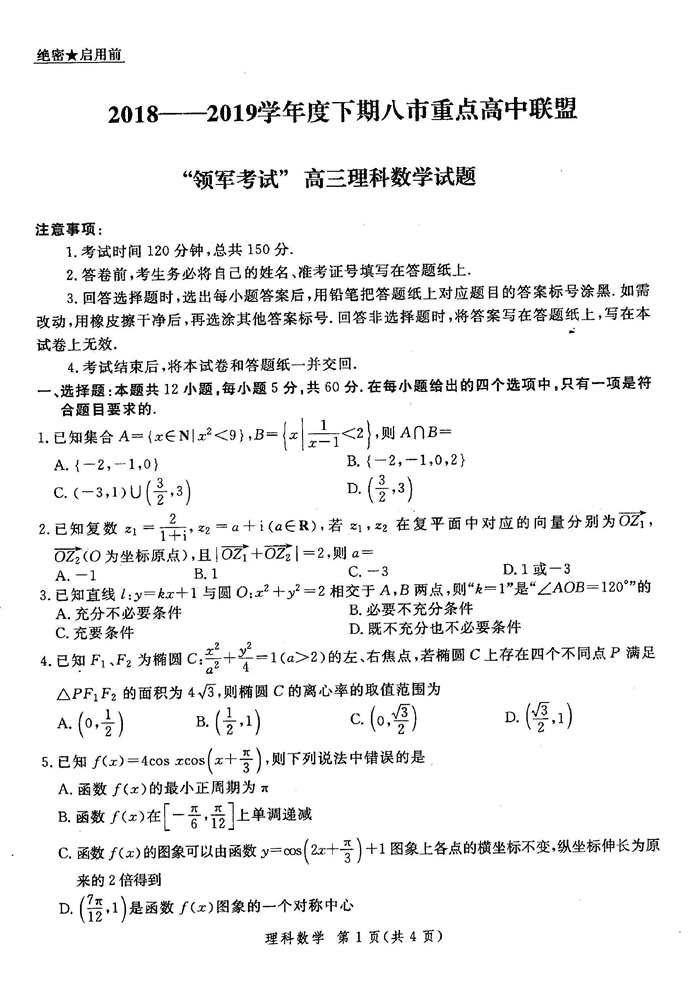 绝密★启用前
2018——2019学年度下期八市重点高中联盟
“领军考试” 高三理科数学试题
注意事项:
1.考试时间 120 分钟,总共 150 分.
2.答卷前,考生务必将自己的姓名、准考证号填写在答题纸上.
3.回答选择题时,选出每小题答案后,用铅笔把答题纸上对应题目的答案标号涂黑.如需
改动,用橡皮擦干净后,再选涂其他答案标号.回答非选择题时,将答案写在答题纸上,写在本
试卷上无效.
4.考试结束后,将本试卷和答题纸一并交回.
一、选择题:本题共 12 小题,每小题 5 分,共 60 分.在每小题给出的四个选项中,只有一项是符
合题目要求的.
1.已知集合 A={x∈N|x²<9},B={x|1/(x-1)<2},则 A∩B=
A.{-2,-1,0} B.{-2,-1,0,2}
C.(-3,1)∪(3/2,3) D.(3/2,3)
2.已知复数 z₁=2/(1+i),z₂=a+i(a∈R),若 z₁,z₂ 在复平面中对应的向量分别为OZ₁→,
OZ₂→(O 为坐标原点),且|OZ₁→+OZ₂→|=2,则 a=
A.-1 B.1 C.-3 D.1 或-3
3.已知直线 l:y=kx+1 与圆 O:x²+y²=2 相交于 A,B 两点,则“k=1”是“∠AOB=120°”的
A.充分不必要条件 B.必要不充分条件
C.充要条件 D.既不充分也不必要条件
4.已知 F₁、F₂ 为椭圆 C:x²/a²+y²/4=1(a>2)的左、右焦点,若椭圆 C 上存在四个不同点 P 满足
△PF₁F₂ 的面积为 4√3,则椭圆 C 的离心率的取值范围为
A.(0,1/2) B.(1/2,1) C.(0,√3/2) D.(√3/2,1)
5.已知 f(x)=4cos xcos(x+π/3),则下列说法中错误的是
A.函数 f(x)的最小正周期为 π
B.函数 f(x)在[-π/6,π/12]上单调递减
C.函数 f(x)的图象可以由函数 y=cos(2x+π/3)+1 图象上各点的横坐标不变,纵坐标伸长为原
来的 2 倍得到
D.(7π/12,1)是函数 f(x)图象的一个对称中心
理科数学 第 1 页(共 4 页)